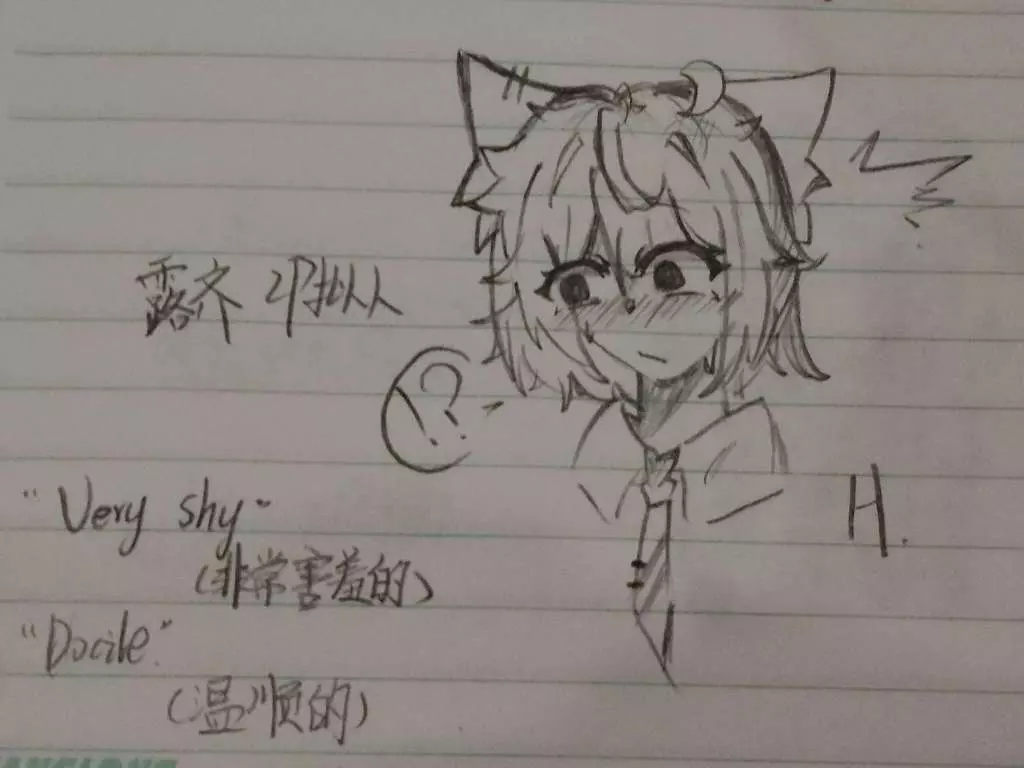 露齐
"Very shy"
(非常害羞的)
"Docile."
(温顺的)
H.
?